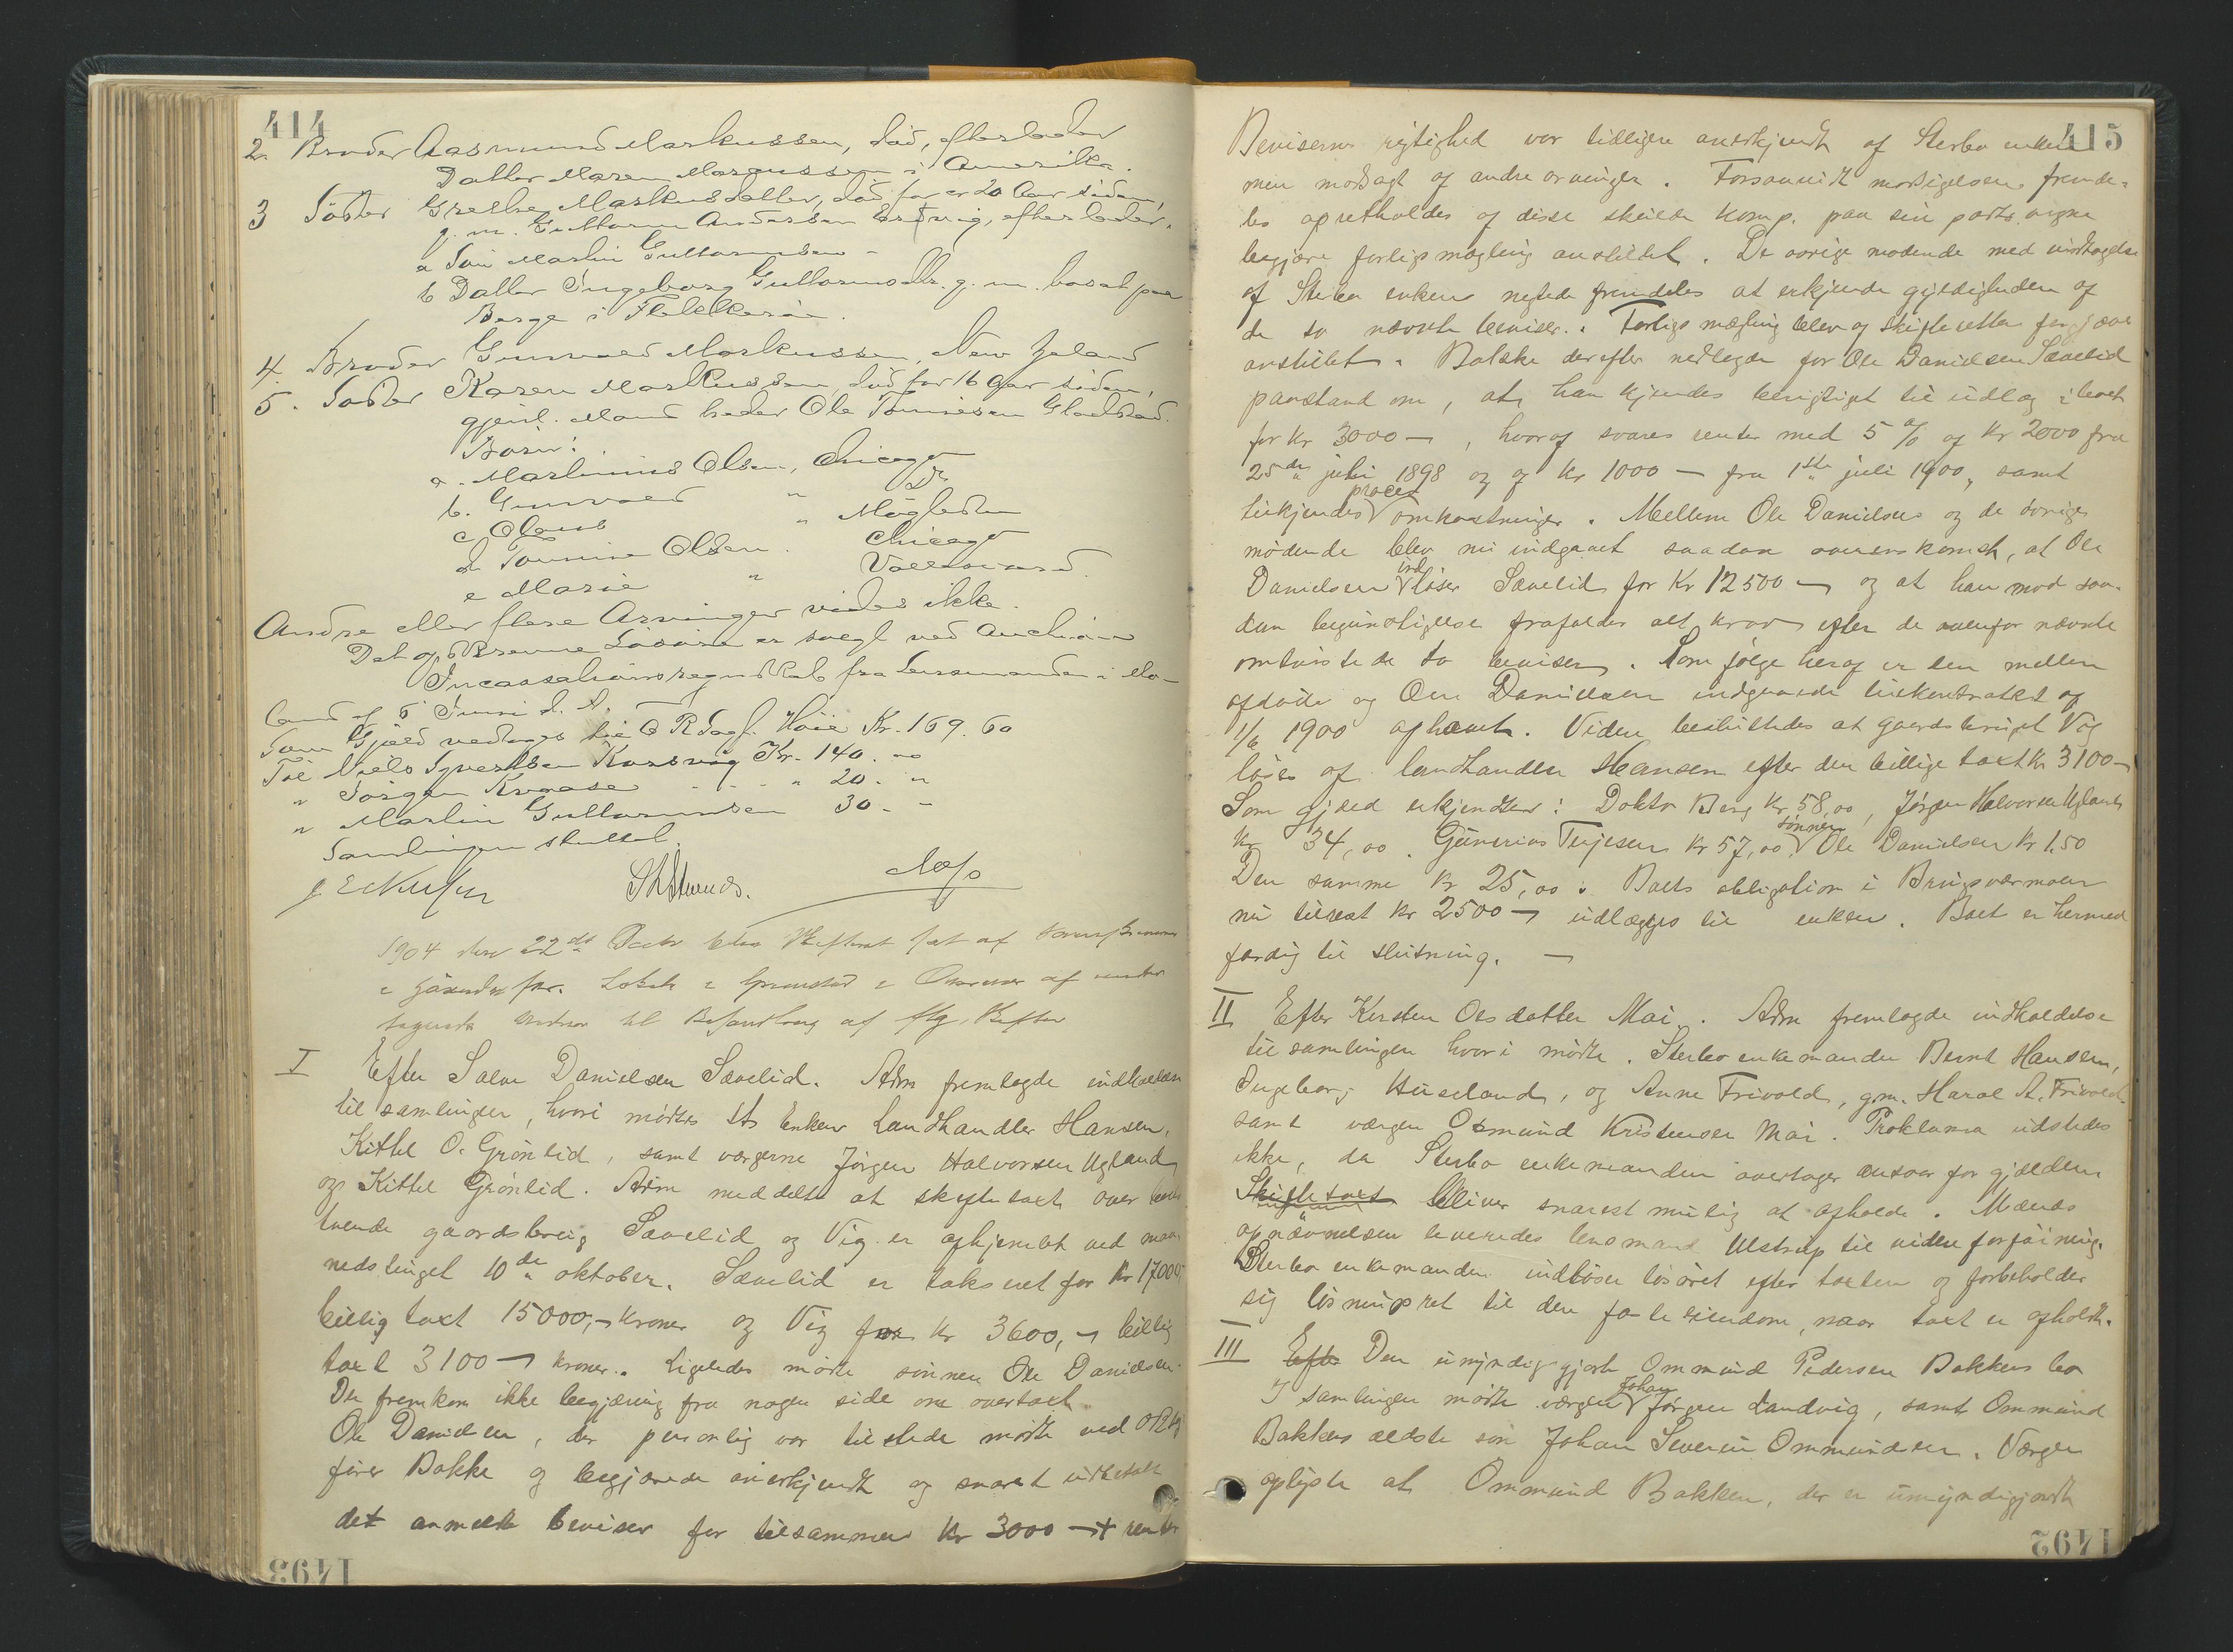 414
2. Broder Aasmund Markussen, död, efterlader
Datter Maren Marcussen i Amerika.
3 Söster Grethe Markusdatter, död for ca 20 Aar siden,
g. m. Guttorm Andersen, efterlader.
a Sön Martin Guttormsen -
b Datter Ingeborg Guttormsdtr. g. m. bosat paa
Berge i Flekkeröe.
4. Broder Gunvald Markussen, New Zeland
5. Söster Karen Markussen, död for 16 Aar siden,
gjenl. Mand heder Ole Tönnesen Gladstad.
Börn:
a. Martinius Olsen, Chicago
b. Gunvald " Do
c Olaus " Möglestu
d Tomine Olsen. Chicago
e Marie "
Andre eller flere Arvinger vides ikke.
Det opskrevne Lösöre er solgt ved Auction
Incassationsregnskab fra Lensmanden i
land af 6 Juni d. A.
Som Gjæld vedtages til O R Sagf. Höie Kr. 169.60
Til Niels Syvertsen Korsvig Kr. 140. "
" Jörgen Knaase - - - " 20. "
" Martin Guttormsen 30. -
Samlingen sluttet.
1904 den 22de blev Skifteret sat af
i for. Lokale i Grimstad i Overvær af under
tegnede Vidner til Behandling af flg. Skifter
I Efter Salve Danielsen Sævelid. Adm fremlagde indkaldelse
til samlingen, hvori mödte for Enken Landhandler Hansen,
Kittel O. Grönlid, samt værgerne Jörgen Halvorsen Ugland
og Kittel Grönlid. Adm meddelte at skiftetaxt over
tvende gaardsbrug Sævelid og Vig er afhjemlet ved maa-
nedstinget 10de oktober. Sævelid er taksert for Kr 17000
billig taxt 15000,- kroner og Vig for kr 3600,- billig
taxt 3100 - kroner. Ligeledes mödte sönnen Ole Danielsen.
Der fremkom ikke begjæring fra nogen side om overtaxt.
Ole Danielsen, der personlig var tilstede mödte ved ORsag
förer Bakke og begjærede anerkjendt og snarest udbetalt
det anmeldte beviser for tilsammen Kr 3000 - + renter
1493
415
Bevisernes rigtighed var tidligere anerkjendt af Sterbo enken
men modsagt af andre arvinger. Forsaavidt modsigelsen frende-
les opretholdes af disse skulde komp. paa sin parts vegne
begjære forligsmægling anstillet. De övrige mödende med undtagelse
af Sterbo enken negtede fremdeles at erkjende gyldigheden af
de to nævnte beviser. Forligsmægling blev af skifteretten forgjæves
anstillet. Bakke derefter nedlagde for Ole Danielsen Sævelid
paastand om, at han kjendes berettiget til udlæg i boet
for Kr 3000 -, hvoraf svares renter med 5 % af Kr 2000 fra
25de juli 1898 og af Kr 1000 - fra 1ste juli 1900, samt
tilkjendes proces omkostninger. Mellem Ole Danielsen og de övrige
mödende blev nu indgaaet saadan overenskomst, at Ole
Danielsen indlöser Sævelid for Kr 12500 - og at han mod saa-
dan begunstigelse frafalder alt krav efter de ovenfor nævnte
omtvistede to beviser. Som fölge herav er den mellem
afdöde og Ole Danielsen indgaaede af
1/6 1900 ophævet. Videre besluttedes at gaardsbruget Vig
löses af landhandler Hansen efter den billige taxt Kr 3100 -
Som gjæld erkjendtes: Doktor Berg Kr 58,00, Jörgen Halvorsen Ugland
Kr 34,00. Gunerius Terjesen Kr 57,00, sönnen Ole Danielsen Kr 1,50
Den samme Kr 25,00. Boets obligation i
nu tilrest Kr 2500 - udlægges til enken. Boet er hermed
færdig til slutning. -
II Efter Kirsten Olsdatter Moi. Adm fremlagde indkaldelse
til samlingen hvori mödte. Sterbo enkemanden Bernt Hansen,
Ingeborg Huseland, og Anne Frivold, g.m. Haral A. Frivold
samt værgen Osmund Kristensen Moi. Proklama udstedes
ikke, da Sterbo enkemanden overtager ansvar for gjælden
Skiftetaxt bliver snarest mulig at afholde. Mænds
opnævnelsen leveredes lensmand Ulstrup til videre forföining.
Sterbo enkemanden indlöser lösöret efter taxten og forbeholder
sig lösningsret til den faste eiendom, naar taxt er afholdt.
III Efter Den umyndiggjorte Ommund Pedersen Bakkens bo
I samlingen mödte værgen Johan Jörgen Landvig, samt Ommund
Bakkens ældste sön Johan Severin Ommundsen. Værgen
oplyste at Ommund Bakken, der er umyndiggjordt
1492